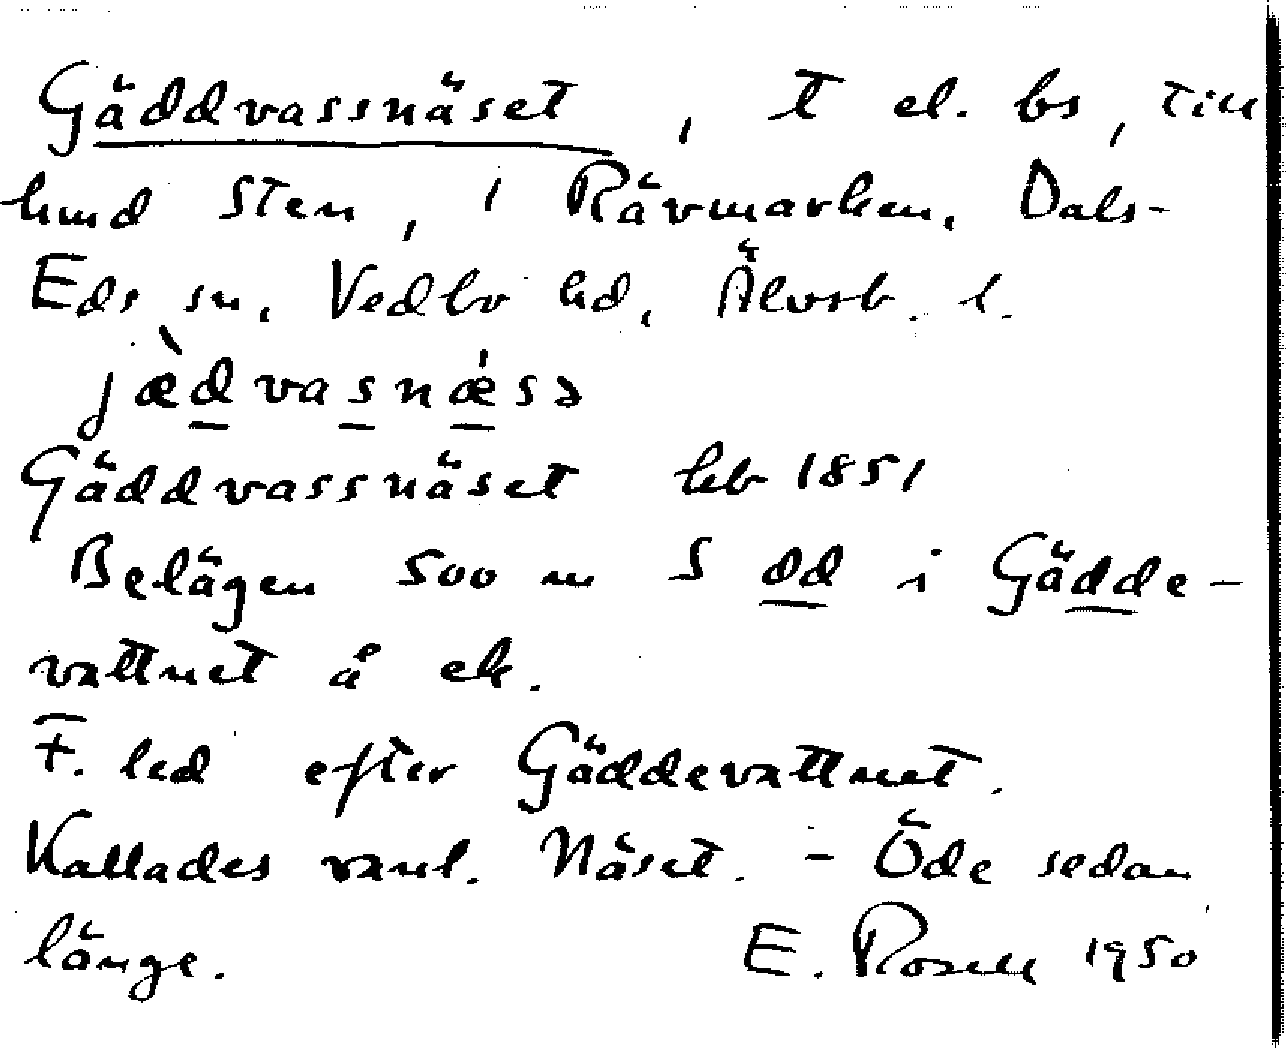 Gäddvassnäset, t el. bs, till
hmd Sten, i Rävmarken, Dals-
Eds sn, Vedbo hd, Älvsb. l.
jæ̀dvasnǽsə
Gäddvassnäset hfb 1851
Belägen 500 m S dd i Gädde-
vattnet å ek.
F. led efter Gäddevattnet.
Kallades vanl. Näset. – Öde sedan
länge. E. Rosell 1950